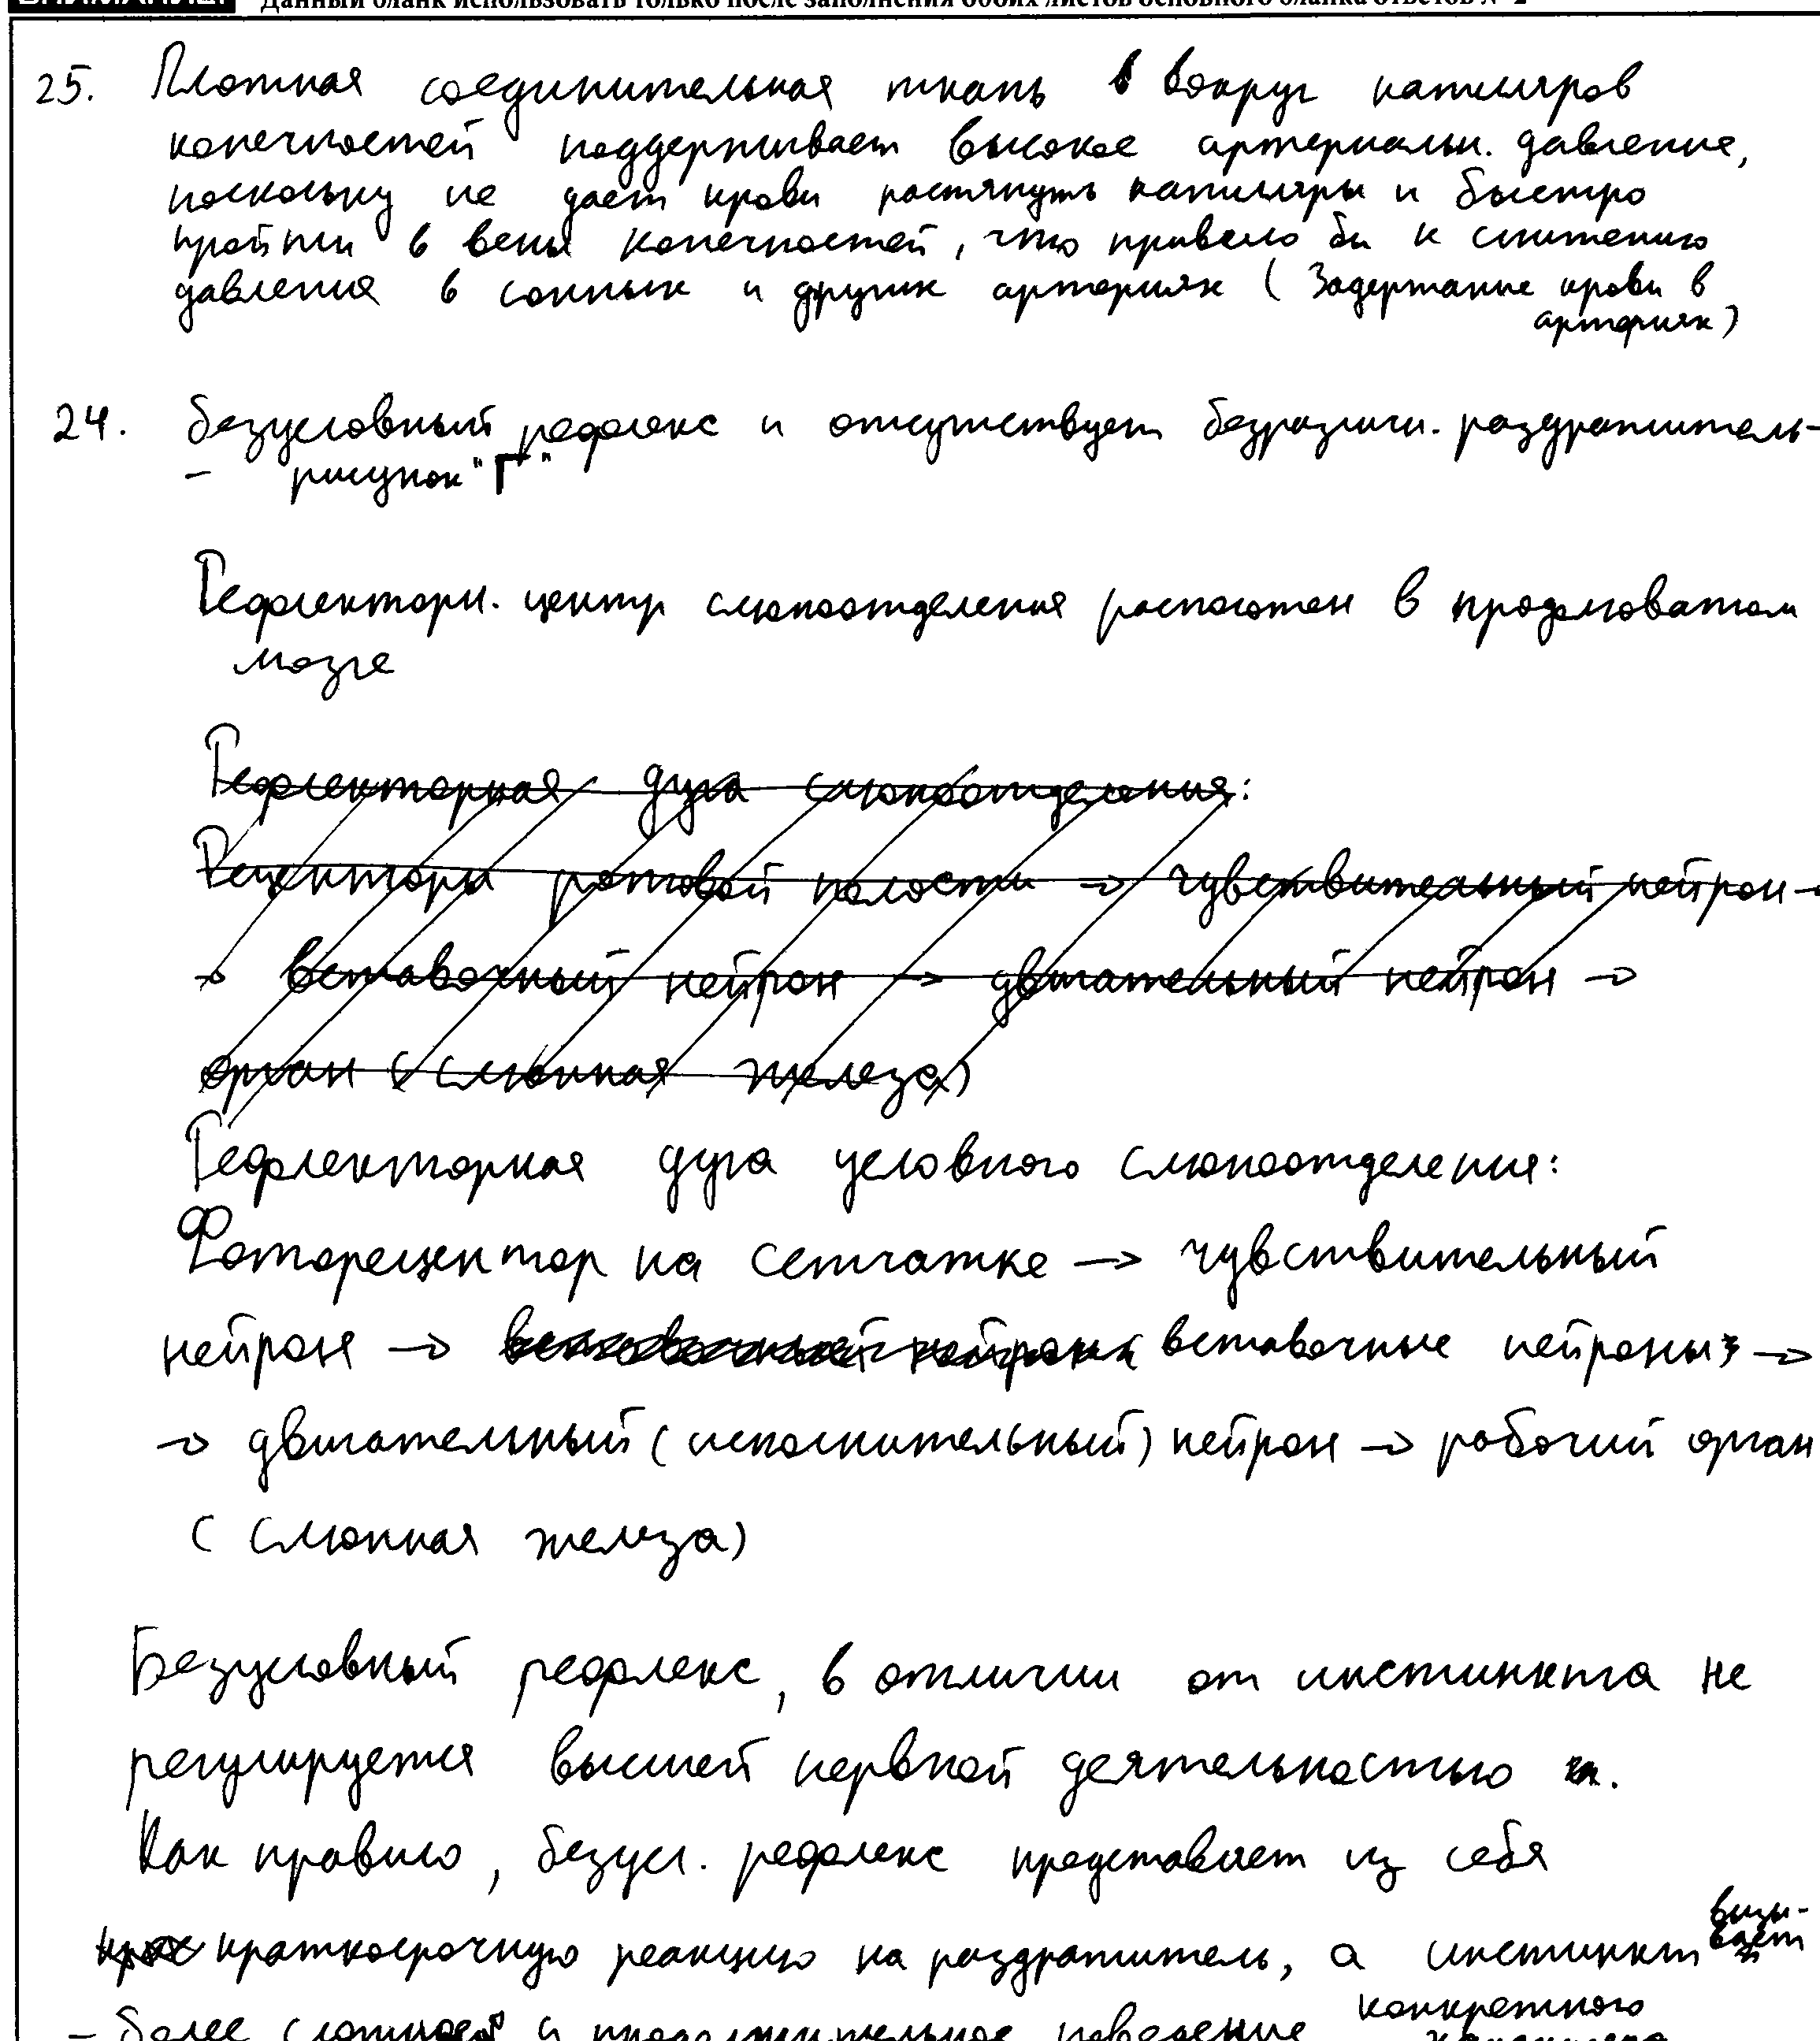 Данный бланк использовать только после заполнения обоих листов основного бланка ответов № 2
25. Плотная соединительная ткань в вокруг капиляров
конечностей поддерживает высокое артериальн. давление,
поскольку не дает крови растянуть капиляры и быстро
пройти в вены конечностей, что привело бы к снижению
давления в сонных и других артериях (Задержание крови в
артериях)
24. безусловный рефлекс и отсутствует безразличн. раздражитель-
- рисунок "Г"
Рефлекторн. центр слюноотделения расположен в продолговатом
мозге
Рефлекторная дуга слюноотделения:
Рецепторы ротовой полости → чувствительный нейрон →
→ вставочный нейрон → двигательный нейрон →
орган (слюнная железа)
Рефлекторная дуга условного слюноотделения:
Фоторецептор на сетчатке → чувствительный
нейрон → вставочные нейроны →
→ двигательный (исполнительный) нейрон → рабочий орган
(слюнная железа)
Безусловный рефлекс, в отличии от инстинкта не
регулируется высшей нервной деятельностью.
Как правило, безусл. рефлекс представляет из себя
краткосрочную реакцию на раздражитель, а инстинкт вызы-
вает
- более и продолжительное поведение конкретного